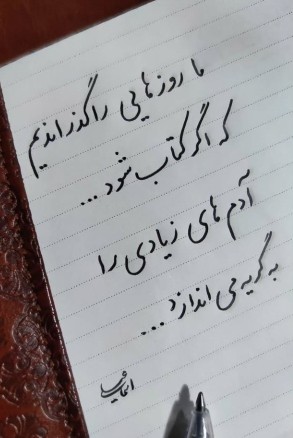 ما روزهایی را گذراندیم
که اگر کتاب شود...
آدم های زیادی را
به گریه می اندازد...